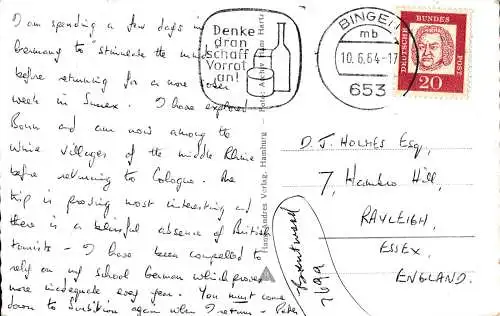 I am spending a few days in
Germany to "stimulate the mind"
before returning for a more sober
week in Sussex. I have explored
Bonn and am now among the
wine villages of the middle Rhine
before returning to Cologne. The
trip is proving most interesting and
there is a blissful absence of British
tourists – I have been compelled to
rely on my school German which proves
more inadequate every year. You must come
down to again when I return – Peter
Denke
dran
schaff
Vorrat
an!
BINGEN
mb
10.6.64-17
653
DEUTSCHE BUNDESPOST
20
Hans Andres Verlag, Hamburg – Foto: Archiv Hans Hartz
D. J. HOLMES Esq,
7, Hambro Hill,
RAYLEIGH,
ESSEX,
ENGLAND.
Brentwood
7699